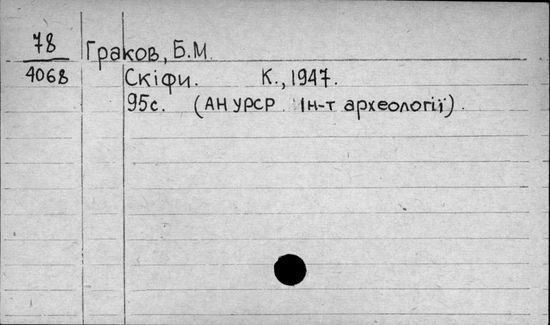 78
4068
Граков, Б.М.
Скіфи. К., 1947.
95с. (АН УРСР. Ін-т археології).